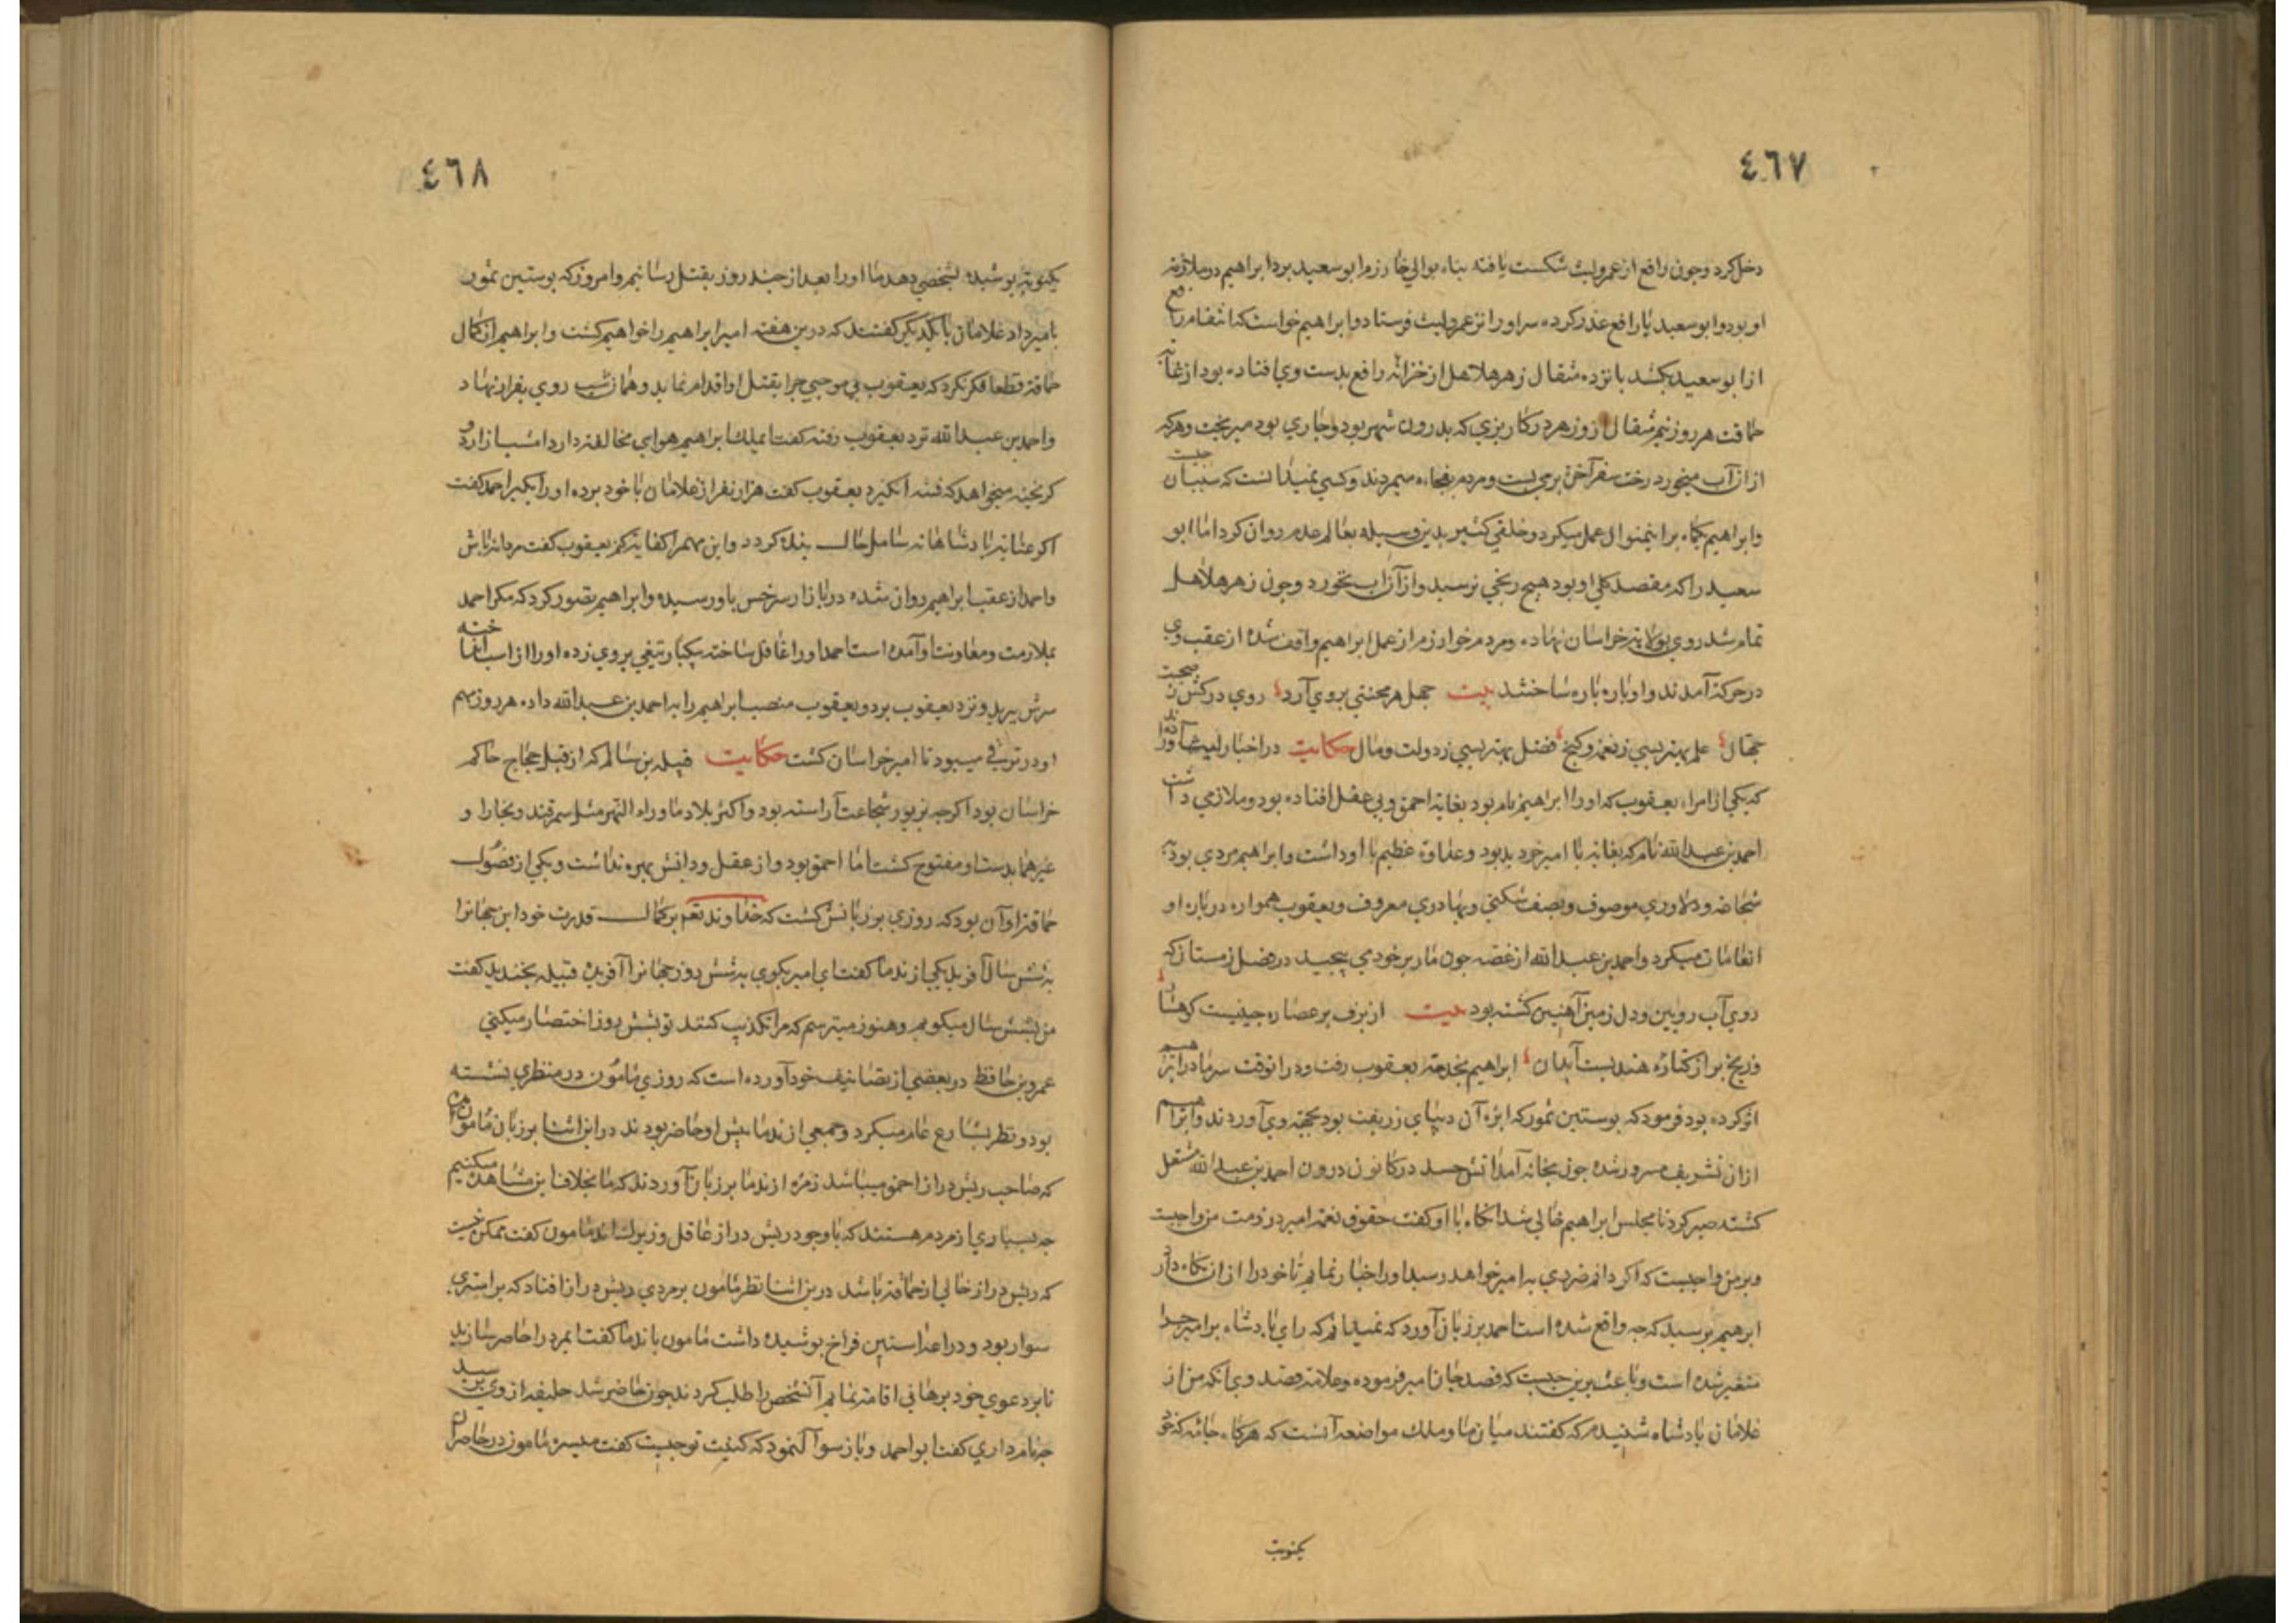 ٤٦٧
دخل کرد وچون رافع از عمرولیث شکست یافته پناه بوالی خوارزم ابو سعید برد ابراهیم در ملازمت
او بود و ابو سعید با رافع غدر کرده سر او را نزد عمرولیث فرستاد و ابراهیم خواست که انتقام رافع
از ابو سعید بکشد پانزده مثقال زهر هلاهل از خزانه رافع بدست وی افتاده بود از غایة
حماقت هر روز نیم مثقال از زهر در کاریزی که بدرون شهر بود و جاری بود میریخت وهر که
از ان آب میخورد رخت سفر آخرة بر می بست ومردم بفجاءه میمردند وکسی نمیدانست که سبب آن چیست
وابراهیم یکماه برینمنوال عمل میکرد و خلقی کثیر بدین وسیله بعالم عدم روان کرد اما ابو
سعید را که مقصد کلی او بود هیچ رنجی نرسید واز آن آب نخورد وچون زهر هلاهل
تمام شد روی بولایة خراسان نهاده ومردم خوارزم از عمل ابراهیم واقف شده از عقب وی
در حرکة آمدند و او را پاره پاره ساختند بیت جهل هر محنتی بروی آرد روی درکش ز صحبت
جهال علم بهتر بسی ز نعمة وکنج فضل بهتر بسی ز دولت ومال حکایت در اخبار لیث آورده اند
که یکی از امراء یعقوب که او را ابراهیم نام بود بغایة احمق وبی عقل افتاده بود و ملازمی داشت
احمد بن عبدالله نام که بغایة با امیر خود بد بود وعداوة عظیم با او داشت وابراهیم مردی بود به
شجاعة ودلاوری موصوف وبصف شکنی وبهادری معروف ویعقوب همواره درباره او
انعامات میکرد واحمد بن عبدالله از غصه چون مار بر خود می پیچید در فصل زمستان که
روی آب رویین ودل زمین آهنین کشته بود بیت از برف بر عصاره کوهسار
وز یخ بر از کناره هند بست آبدان ابراهیم بخدمة یعقوب رفت ودر انوقت سرما در ابراهیم
اثر کرده بود فرمود که پوستین سمور که ابره آن دیبای زربفت بود بجهة وی آوردند وابراهیم
از ان تشریف مسرور شده چون بخانه آمد آتش حسد در کانون درون احمد بن عبدالله مشتعل
کشته صبر کرد تا مجلس ابراهیم خالی شد انکاه با او کفت حقوق نعمة امیر در ذمت من واجبست
وبر من واجبست که اکر دانم ضرری به امیر خواهد رسید او را اخبار نمایم تا خود را از ان نکاه دارد
ابرهیم پرسید که چه واقع شده است احمد بر زبان آورد که نمیدانم که رای پادشاه بر امیر چرا
متغیر شده است وباعث برین چیست که قصد جان امیر فرموده وعلامة قصد وی آنکه من از
غلامان پادشاه شنیدم که کفتند میان ما وملک مواضعه آنست که هرکاه جامه که خود
یکنوبت
٤٦٨
یکنوبة پوشیده بشخصی دهد ما او را بعد از چند روز بقتل رسانیم وامروز که پوستین سمور
بامیر داد غلامان با یکدیکر کفتند که درین هفته امیر ابراهیم را خواهیم کشت وابراهیم از کمال
حماقة قطعا فکر نکرد که یعقوب بی موجبی چرا بقتل او اقدام نماید وهمان شب روی بفرار نهاد
واحمد بن عبدالله نزد یعقوب رفته کفت ایملک ابراهیم هوای مخالفة دارد امشب از اردو
کریخته میخواهد که فتنه انکیزد یعقوب کفت هزار نفر از غلامان با خود برده او را بکیر احمد کفت
اکر عنایة پادشاهانه شامل حال بنده کردد واین مهم را کفایة کنم یعقوب کفت مردانه باش
واحمد از عقب ابراهیم روان شده در بازار سرخس باو رسیده وابراهیم تصور کرد که مکر احمد
بملازمت ومعاونت او آمده است احمد او را غافل ساخته یکبار تیغی بروی زده او را از اسب انداخته
سرش ببرید ونزد یعقوب برد ویعقوب منصب ابراهیم را به احمد بن عبدالله داده هر روز مهم
او در ترقی میبود تا امیر خراسان کشت حکایت قتیبه بن سالم که از قبل حجاج حاکم
خراسان بود اکرچه بزیور شجاعت آراسته بود واکثر بلاد ماوراء النهر مثل سمرقند وبخارا و
غیرهما بدست او مفتوح کشت اما احمق بود واز عقل ودانش بهره نداشت ویکی از فضول
حماقة او آن بود که روزی بر زبانش کشت که خداوند تعم بر کمال قدرت خود این جهانرا
به شش سال آفرید یکی از ندما کفت ای امیر بکوی به شش روز جهانرا آفرید قتیبه بخندید کفت
من بشش سال میکویم وهنوز میترسم که مرا تکذیب کنند تو بشش روز اختصار میکنی
عمرو بن حافظ در بعضی از تصانیف خود آورده است که روزی مامون در منظری نشسته
بود ونظر بشارع عام میکرد وجمعی از ندما پیش او حاضر بودند در این اثنا بر زبان مامون
که صاحب ریش دراز احمق میباشد زمره از ندما بر زبان آوردند که ما بخلاف این مشاهده میکنیم
چه بسیاری از مردم هستند که با وجود ریش دراز عاقل وزیرک اند مامون کفت ممکن نیست
که ریش دراز خالی از حماقة باشد درین اثنا نظر مامون بر مردی ریش دراز افتاد که بر استری
سوار بود ودراعه آستین فراخ پوشیده داشت مامون با ندما کفت ایمرد را حاضر سازید
تا بر دعوی خود برهانی اقامة نمایم آنشخص را طلب کردند چون حاضر شد خلیفه از وی پرسید
چه نام داری کفت ابو احمد وباز سوال نمود که کنیت تو چیست کفت میسره مامون